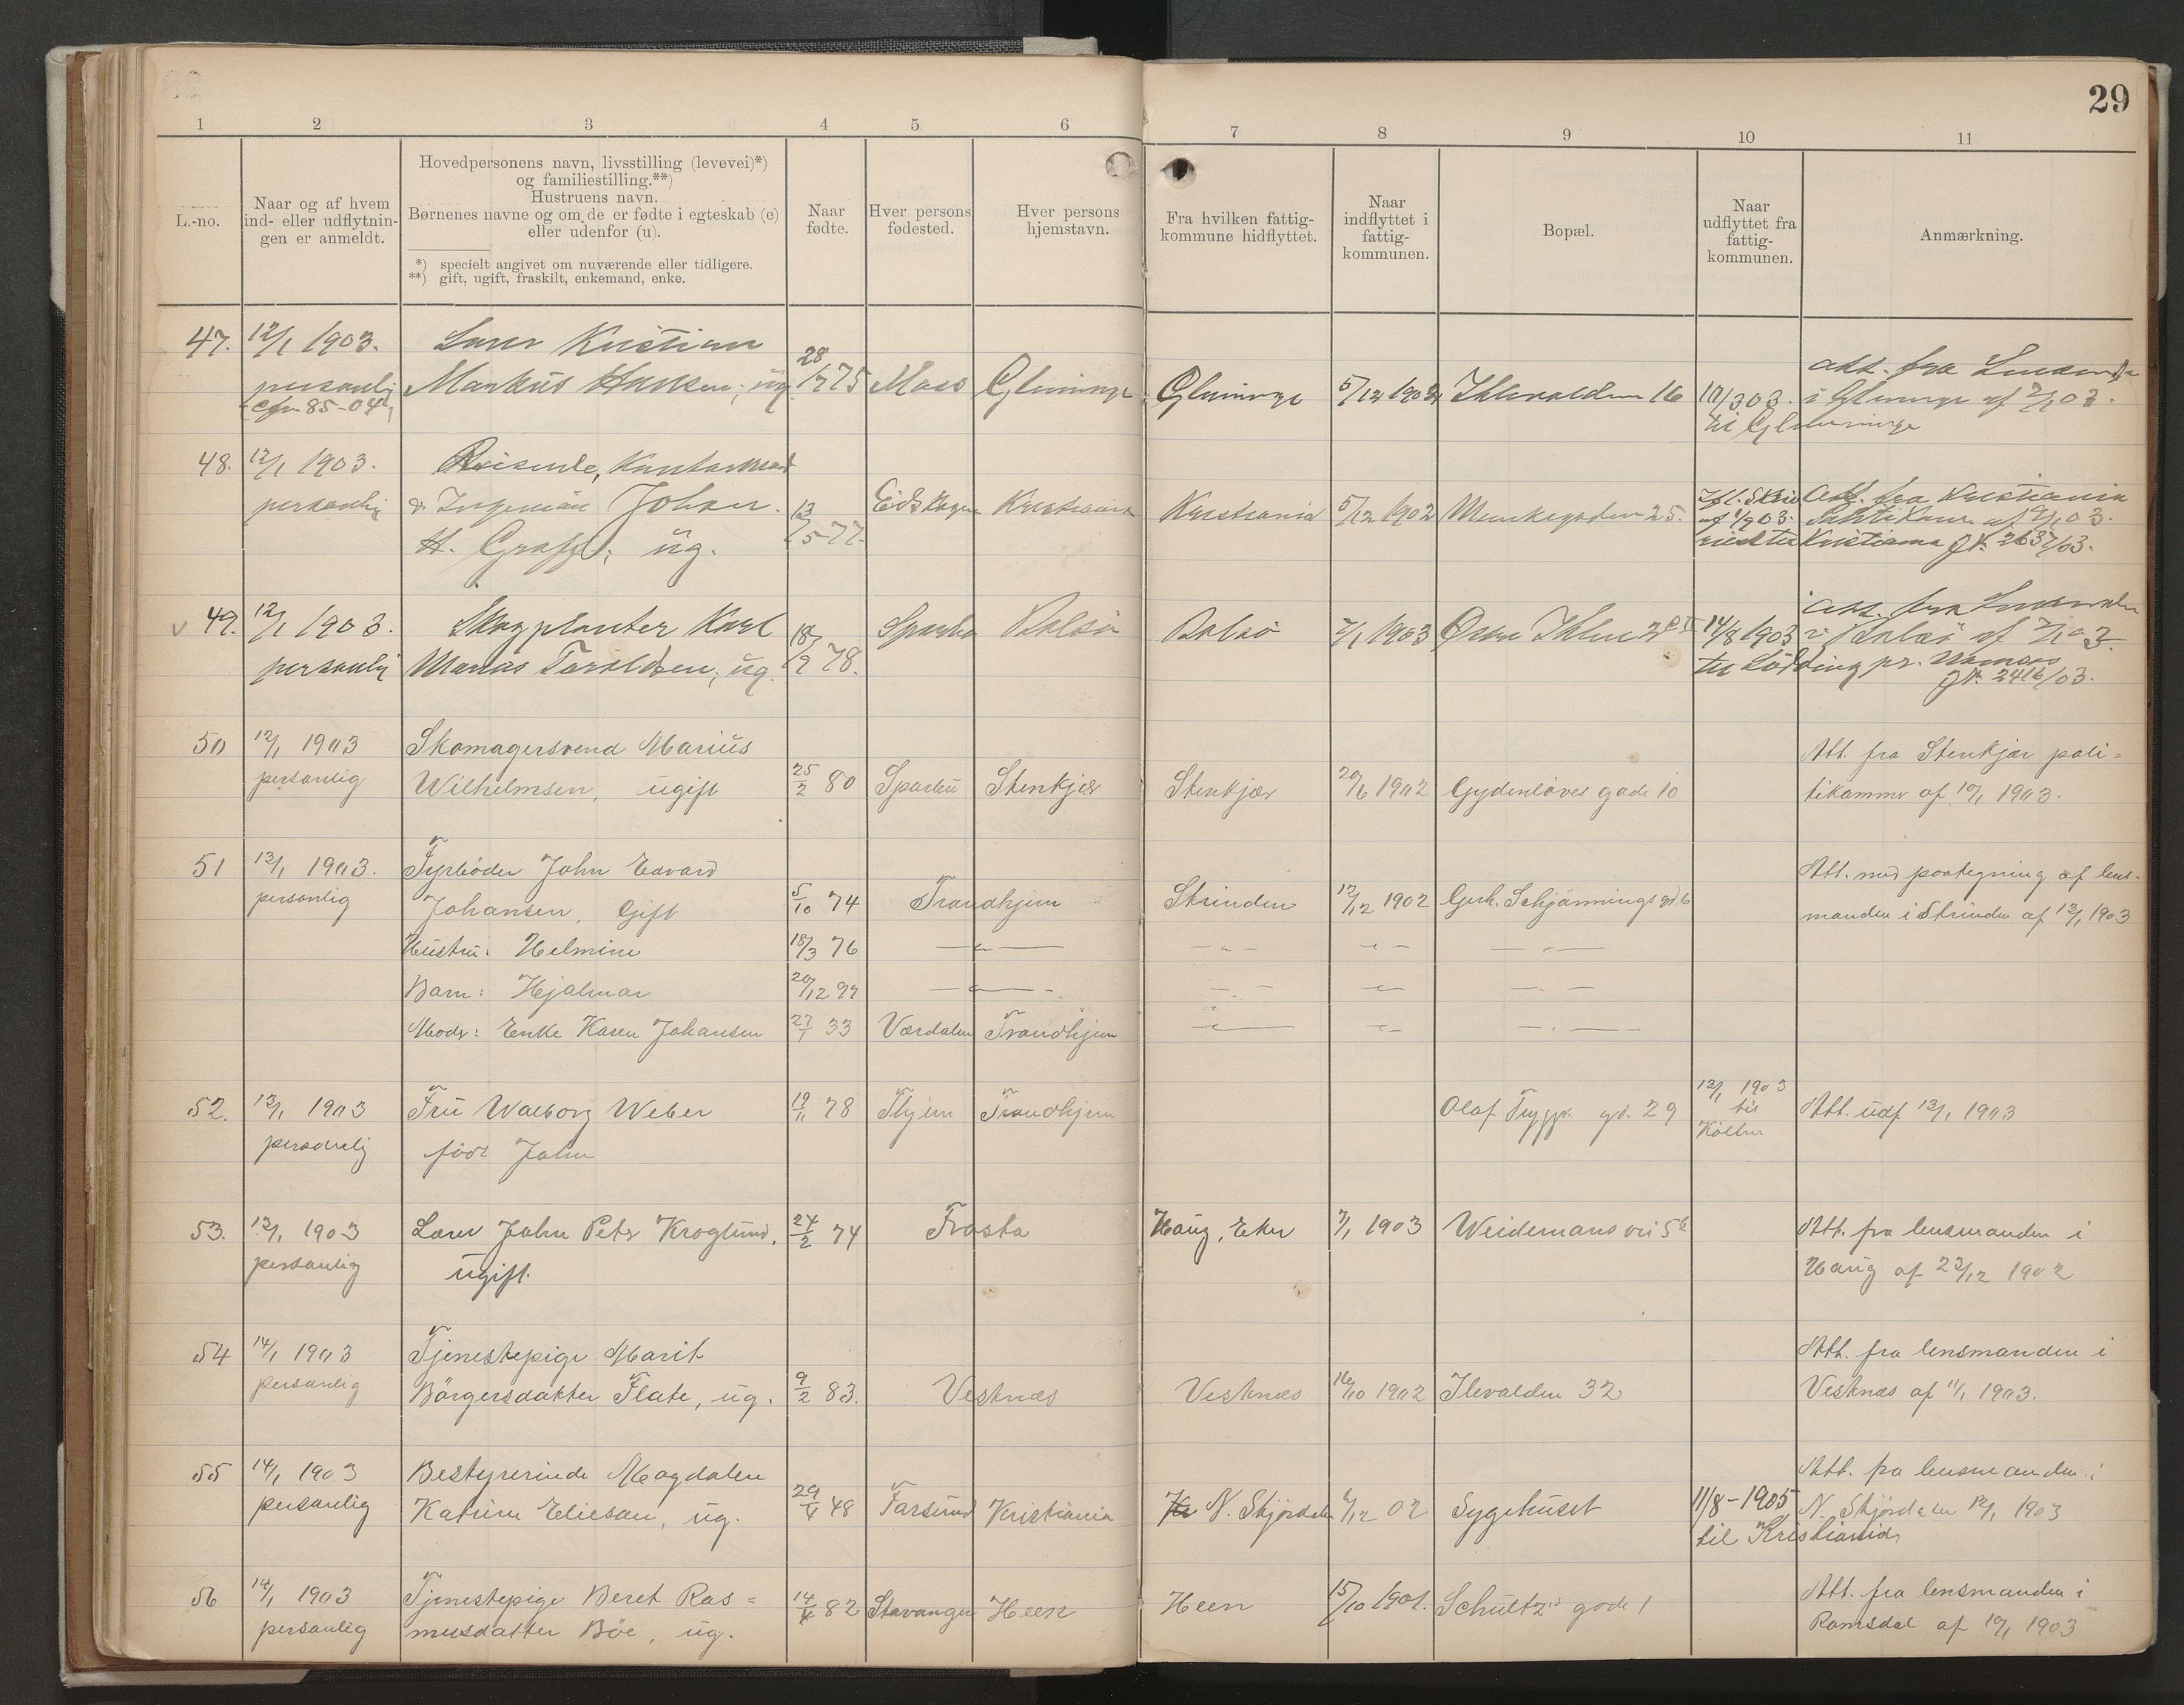 29
1 2 3 4 5 6 7 8 9 10 11
L.-no.
Naar og af hvem
ind- eller udflytnin-
gen er anmeldt.
Hovedpersonens navn, livsstilling (levevei)*)
og familiestilling.**)
Hustruens navn.
Børnenes navne og om de er fødte i egteskab (e)
eller udenfor (u).
*) specielt angivet om nuværende eller tidligere.
**) gift, ugift, fraskilt, enkemand, enke.
Naar
fødte.
Hver persons
fødested.
Hver persons
hjemstavn.
Fra hvilken fattig-
kommune hidflyttet.
Naar
indflyttet i
fattig-
kommunen.
Bopæl.
Naar
udflyttet fra
fattig-
kommunen.
Anmærkning.
47. 12/1 1903. Kristian att. fra
personlig Markus 28/7 75 Moss Glemminge Glemminge 5/12 1902 Ihlevolden 16 i Glemminge af
(cfr 85-04) til Glemminge
48. 12/1 1903. Reisende, Kontormand
personlig & Johan 13/5 77 Kristiania Kristiania 5/12 1902 Munkegaden 25. att. fra Kristiania
H. ug. Kristiania
49. 12/1 1903. Skogplanter Karl att. fra
personlig Marius Taraldsen, ug. 18/9 78. Sparbu Bolsö Bolsö 7/1 1903 14/8 1903 i Bolsö af
til pr. Namsos
Jr. 2416/03.
50 12/1 1903 Skomagersvend Marius Att. fra Stenkjær poli-
personlig Wilhelmsen, ugift 25/2 80 Sparbu Stenkjær Stenkjær 20/6 1902 Gydenløves gade 10 tikammer af 10/1 1903.
51 13/1 1903. Fyrbøder John Edvard Att. med paategning af lens-
personlig Johansen, Gift 5/10 74 Trondhjem Strinden 12/12 1902 Gerh. Schjønnings gd. 6 manden i Strinden af 13/1 1903
Hustru: Helmine 18/3 76 — " — — " — — " — — " —
Barn: Hjalmar 20/12 99 — " — — " — — " — — " —
Moder: Enke Karen Johansen 27/1 33 Værdalen Trondhjem — " — — " — — " —
52. 13/1 1903 Fru Walborg Weber 19/11 78 Thjem Trondhjem Olaf Tryggv. gd. 29 13/1 1903 til Att. udf 13/1 1903
personlig född Jahn
53. 13/1 1903 Lærer John Peter Kroglund, 24/2 74 Frosta Haug, Eker 7/1 1903 Weidemans vei 5 Att. fra lensmanden i
personlig ugift. Haug af 23/12 1902
54 14/1 1903 Tjenestepige Marit Att. fra lensmanden i
personlig Börgersdatter Flate, ug. 9/2 83. Vestnæs Vestnæs 16/10 1902 Ilevolden 32 Vestnæs af 11/1 1903.
55 14/1 1903 Bestyrerinde Magdalen Att. fra lensmanden i
personlig Katrine Eliesen, ug. 29/4 48 Farsund Kristiania N. Stjørdalen 6/12 02 Sygehuset 11/8-1905 N. Stjørdalen 12/1 1903
til Kristiania
56 14/1 1903 Tjenestepige Beret Ras= Att. fra lensmanden i
personlig musdatter Böe, ug. 14/4 82 Stavanger Heen Heen 15/10 1901. Schultz's gade 1 Romsdal af 10/1 1903